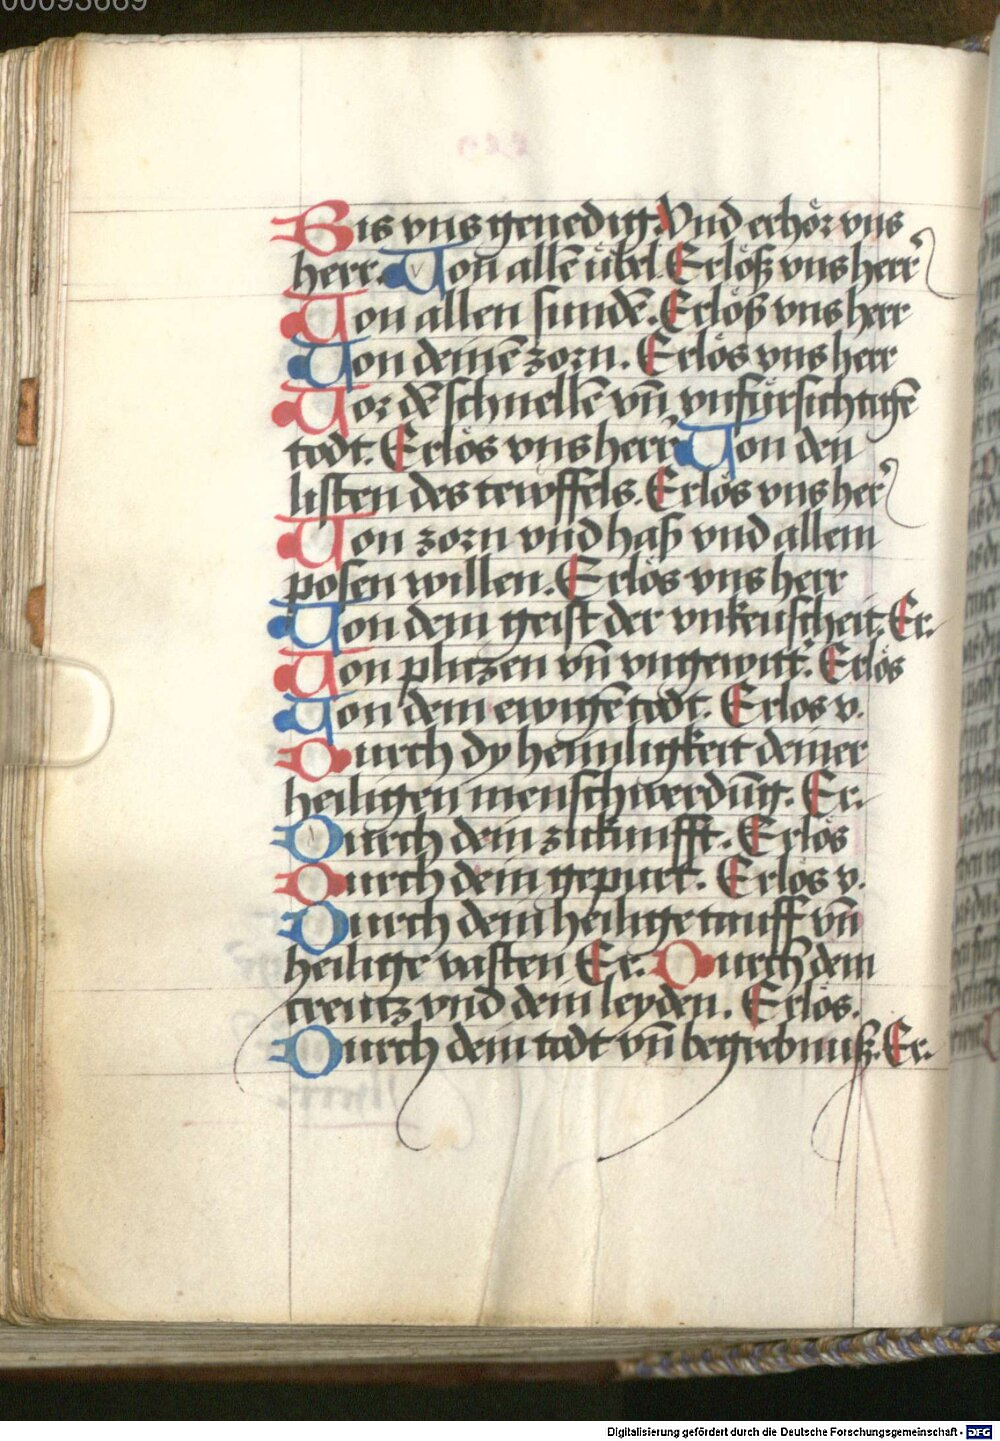 00093669
Bis vns genedig. Vnd erhör vns
herr. Von allē übel. Erlöß vns herr
Von allen sundē. Erlöß vns herr
Von deinē zorn. Erlös vns herr
Vor dē schnellē vn̄ vnfürsichtigē
todt. Erlös vns herr Von den
listen des tewffels. Erlös vns her
Von zorn vnd haß vnd allem
posen willen. Erlös vns herr
Von dem geist der vnkeuscheit. Er.
Von plitzen vn̄ vngewitt'. Erlös
Von dem ewigē todt. Erlos v.
Durch dy heimligkeit deiner
heiligen menschwerdūg. Er.
Durch dein zukunfft. Erlös
Durch dein gepurt. Erlös v.
Durch dein heilige tauff vn̄
heilige vasten Er. Durch dein
creutz vnd dein leyden. Erlös.
Durch dein todt vn̄ begrebnuß. Er.
Digitalisierung gefördert durch die Deutsche Forschungsgemeinschaft - DFG